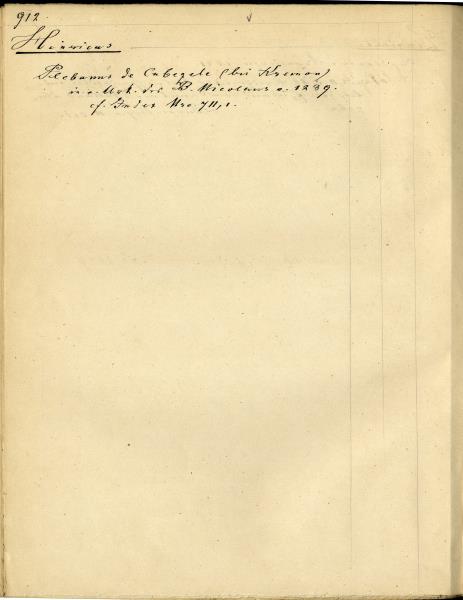 912.
Heinricus
Plebanus de Cubezele (bei Kremon)
in e. Urk. des B. Nicolaus a. 1239.
cf. Index Nro 711, 1.